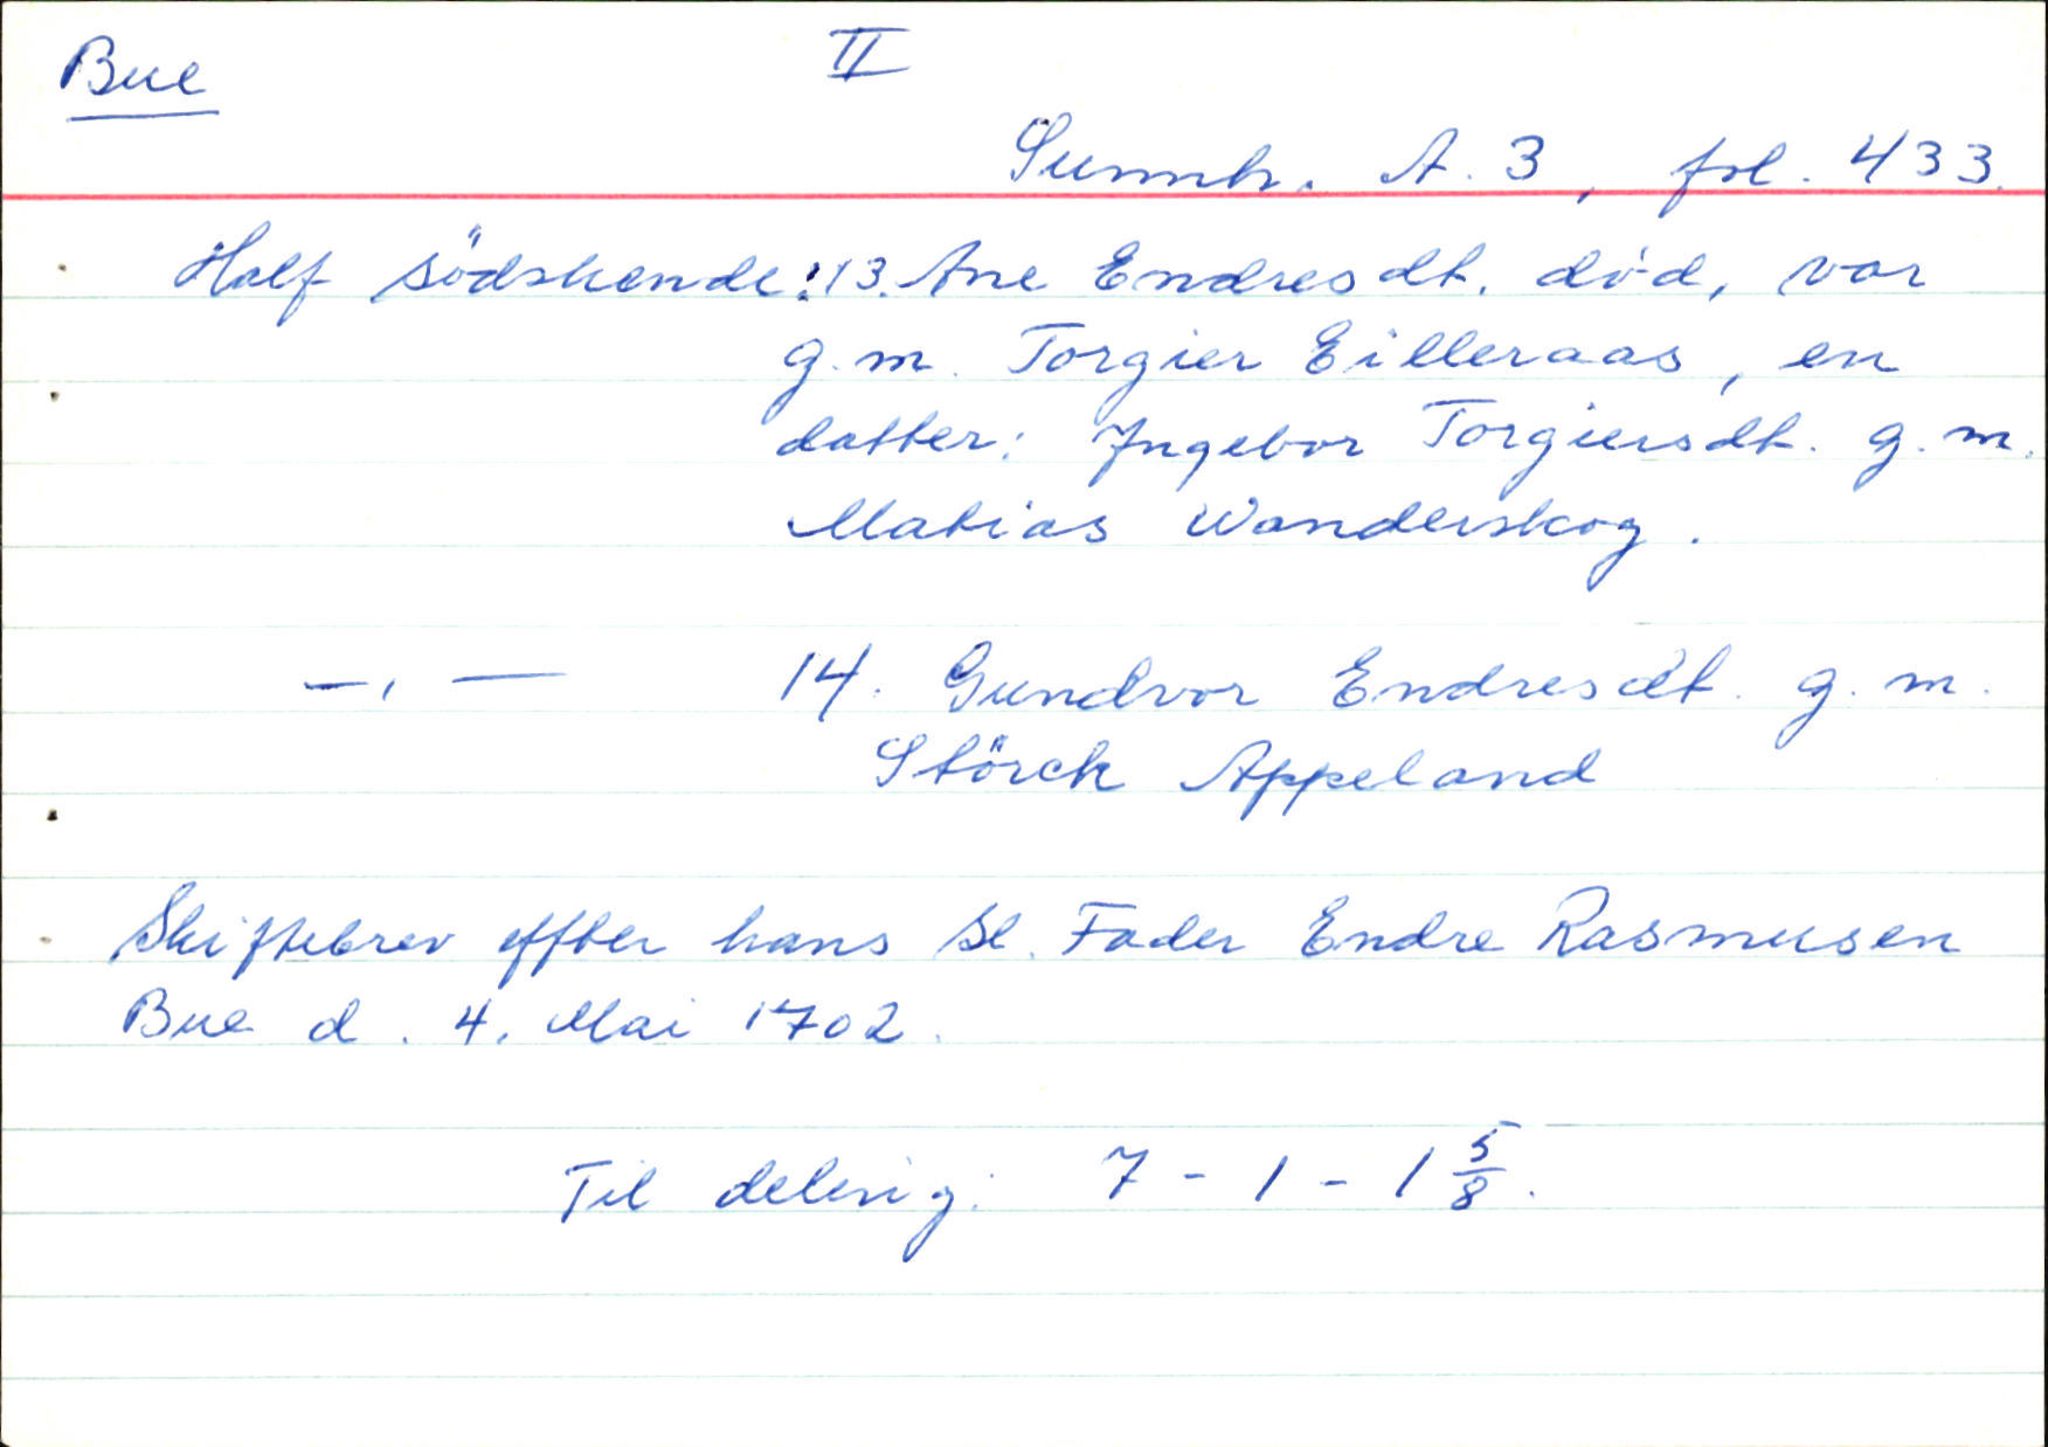 Bue
II
Sunnh. A. 3, fol. 433.
Half södskende: 13. Ane Endresdt. död, var
g. m. Torgier Eilleraas, en
datter: Ingebor Torgiersdt. g. m.
Matias Wanderskog.
—,— 14. Gundvor Endresdt. g. m.
Störck Appeland
Skiftebrev effter hans Sl. Fader Endre Rasmusen
Bue d. 4. Mai 1702.
Til deling: 7 - 1 - 1 5/8.